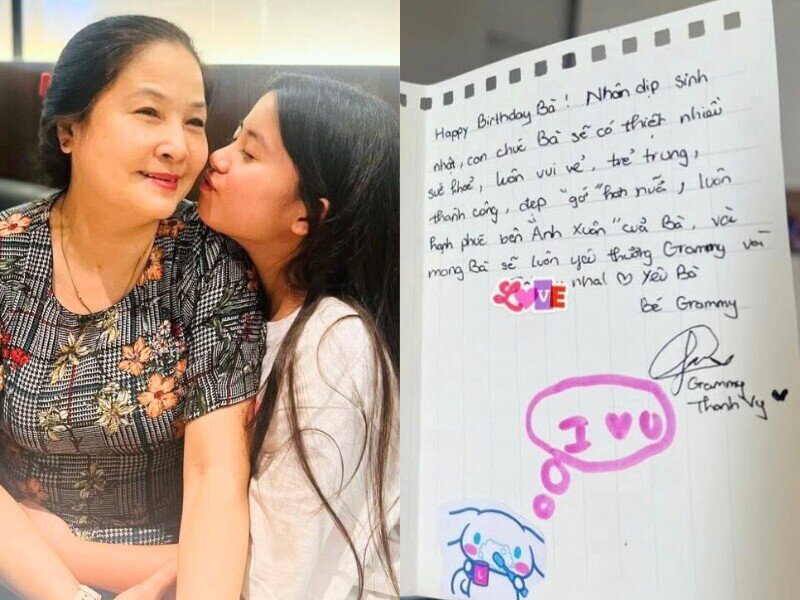 Happy Birthday Bà! Nhân dịp sinh
nhật, con chúc Bà sẽ có thiệt nhiều
sức khoẻ, luôn vui vẻ, trẻ trung,
thành công, đẹp "gó" hơn nữa, luôn
hạnh phúc bên "Ánh Xuân" của Bà, và
mong Bà sẽ luôn yêu thương Grammy và
nha! ♡ Yêu Bà
LOVE
Bé Grammy
Grammy
Thanh Vy ♥
I ♥ U